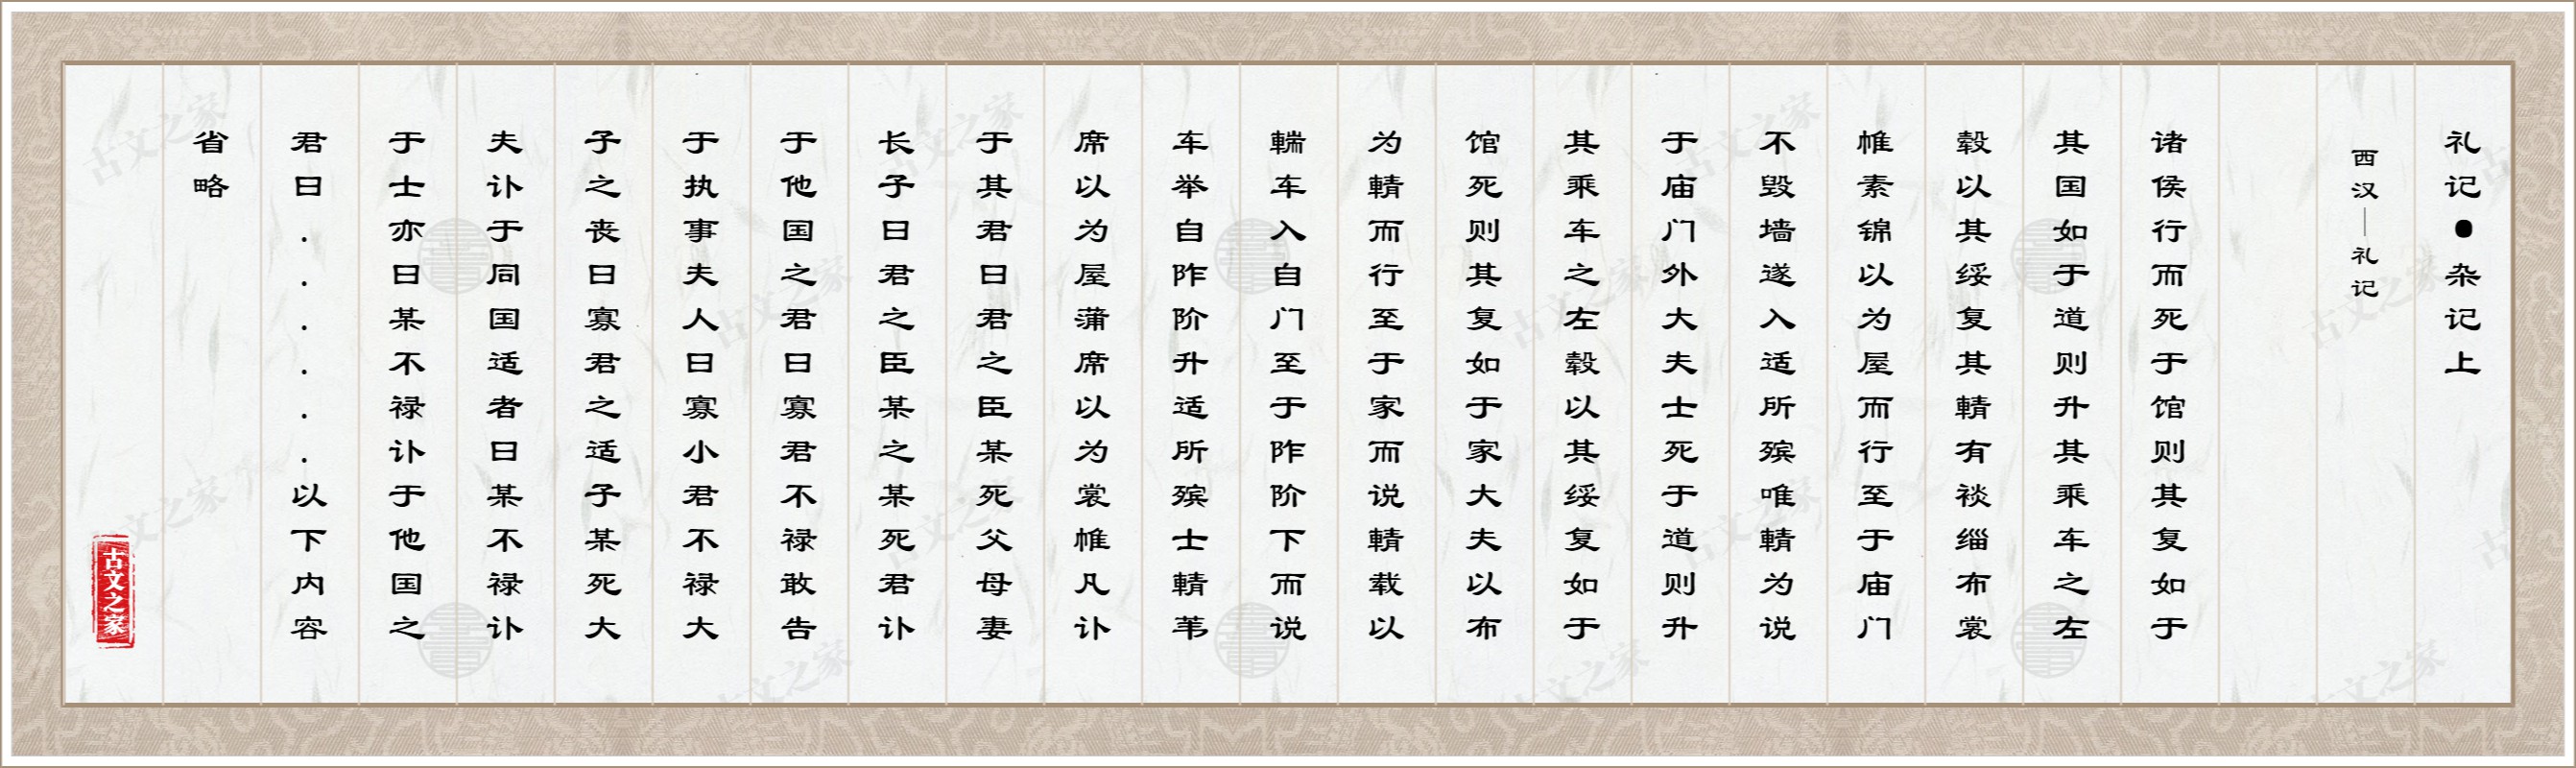 礼记●杂记上
西汉—礼记
诸侯行而死于馆则其复如于
其国如于道则升其乘车之左
毂以其绥复其輤有裧缁布裳
帷素锦以为屋而行至于庙门
不毁墙遂入适所殡唯輤为说
于庙门外大夫士死于道则升
其乘车之左毂以其绥复如于
馆死则其复如于家大夫以布
为輤而行至于家而说輤载以
輲车入自门至于阼阶下而说
车举自阼阶升适所殡士輤苇
席以为屋蒲席以为裳帷凡讣
于其君曰君之臣某死父母妻
长子曰君之臣某之某死君讣
于他国之君曰寡君不禄敢告
于执事夫人曰寡小君不禄大
子之丧曰寡君之适子某死大
夫讣于同国适者曰某不禄讣
于士亦曰某不禄讣于他国之
君曰......以下内容
省略
古文之家